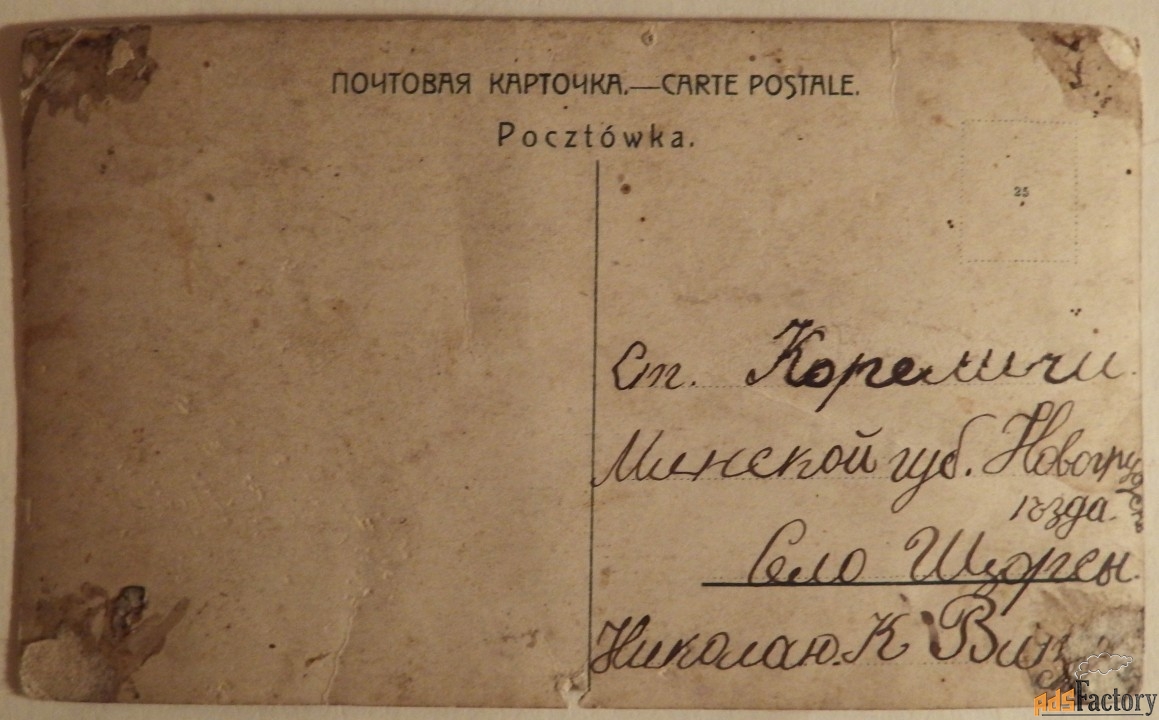 ПОЧТОВАЯ КАРТОЧКА.—CARTE POSTALE.
Pocztówka.
25
Ст. Кореличи.
Минской губ. Новогрудск
ѣзда.
Село Щорсы.
Николаю. К
pdsFactory